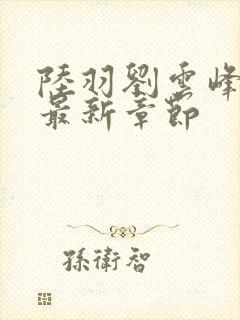 陸羽劉雲峰
最新章節
孫衛智